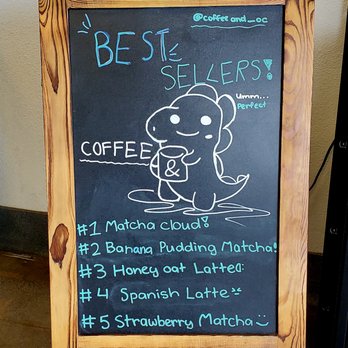 @coffeeand_oc
BEST
SELLERS!
Umm...
Perfect
COFFEE
&
#1 Matcha cloud!
#2 Banana Pudding Matcha!
#3 Honey oat Latte
#4 Spanish Latte
#5 Strawberry Matcha